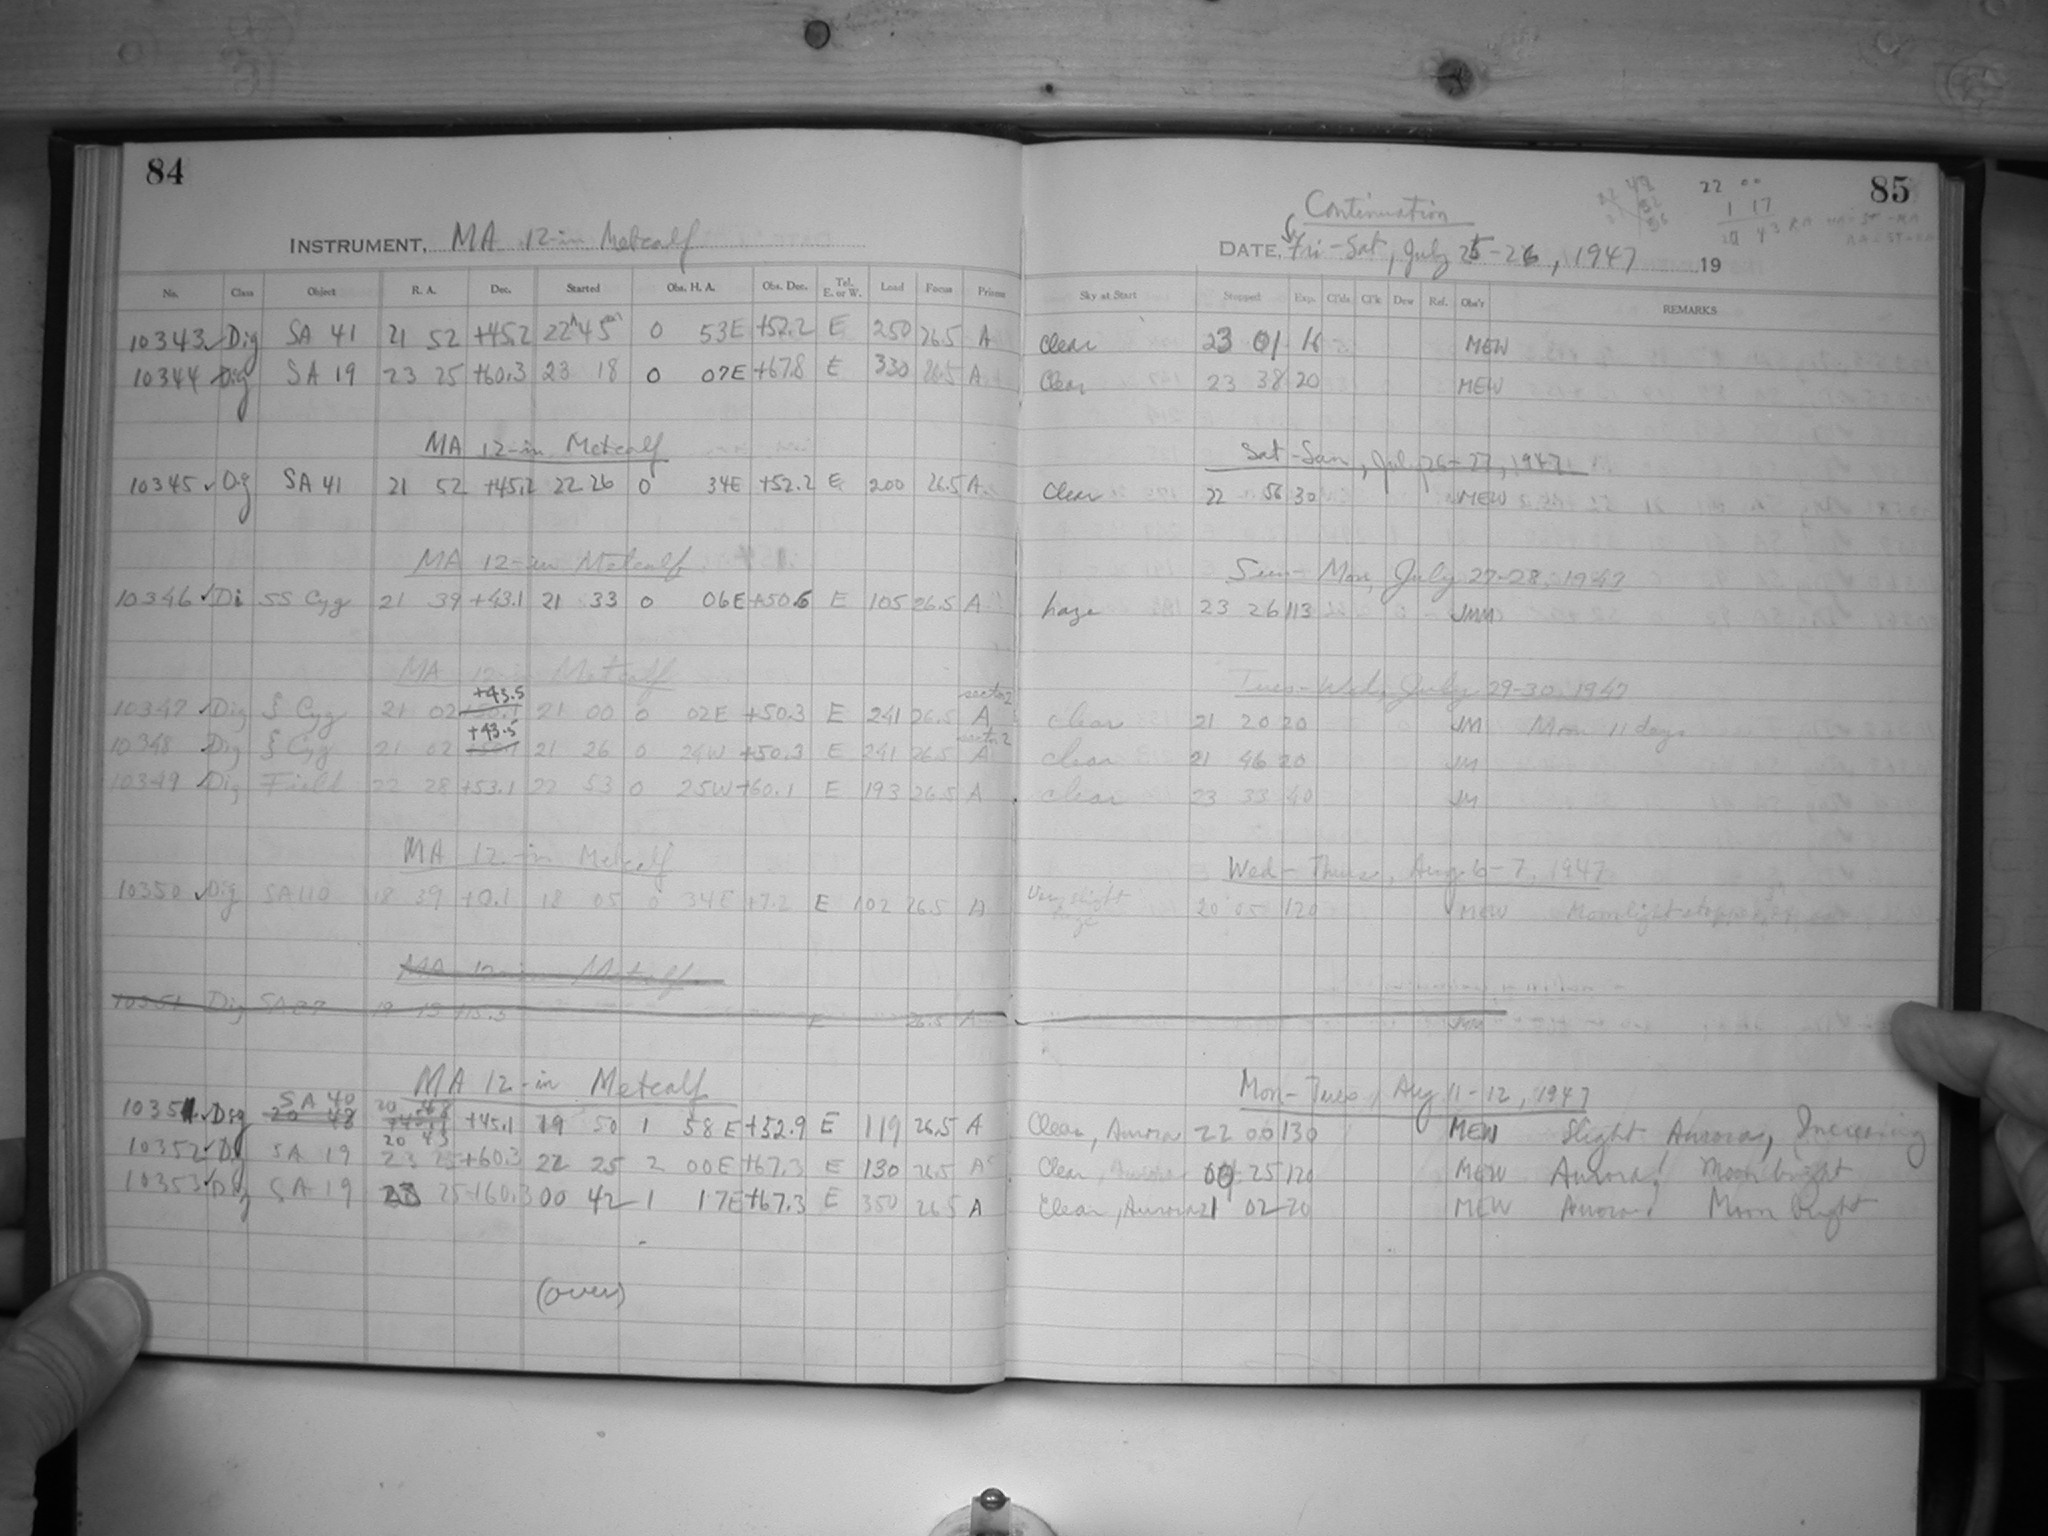 84
INSTRUMENT, MA 12-in Metcalf
No. Class Object R. A. Dec. Started Obs. H. A. Obs. Dec. Tel. E. or W. Load Focus Prisms
10343 Dig SA 41 21 52 +45.2 22h 45m 0 53E +52.2 E 250 26.5 A
10344 Dig SA 19 23 25 +60.3 23 18 0 07E +67.8 E 330 26.5 A
MA 12-in Metcalf
10345 Dg SA 41 21 52 +45.2 22 26 0 34E +52.2 E 200 26.5 A
MA 12-in Metcalf
10346 Di SS Cyg 21 39 +43.1 21 33 0 06E +50.6 E 105 26.5 A
MA 12-in Metcalf
+43.5 sector 2
10347 Dig ξ Cyg 21 02 21 00 0 02E +50.3 E 241 26.5 A
+43.5 sector 2
10348 Dig ξ Cyg 21 02 21 26 0 24W +50.3 E 241 26.5 A
10349 Dig Field 22 28 +53.1 22 53 0 25W +60.1 E 193 26.5 A
MA 12-in Metcalf
10350 Dig SA110 18 39 +0.1 18 05 0 34E +7.2 E 102 26.5 A
MA 12-in Metcalf
10351 Dig SA87 +15.3 E 26.5 A
MA 12-in Metcalf
SA 40 20 48
10351 Dig 20 48 +45.1 19 50 1 58E +52.9 E 119 26.5 A
20 43
10352 Dig SA 19 23 25 +60.3 22 25 2 00E +67.3 E 130 26.5 A
10353 Dig SA 19 23 25 +60.3 00 42 1 17E +67.3 E 350 26.5 A
(over)
85
22 00
1 17
20 43 RA
Continuation
DATE, Fri-Sat, July 25-26, 1947 19
Sky at Start Stopped Exp. Cl'ds Cl'k Dew Ref. Obs'r REMARKS
Clear 23 01 16 MEW
Clear 23 38 20 MEW
Sat-Sun, July 26-27, 1947
Clear 22 56 30 MEW
Sun-Mon, July 27-28, 1947
haze 23 26 113 JMM
Tues-Wed, July 29-30, 1947
clear 21 20 20 JM Moon 11 days
clear 21 46 20 JM
clear 23 33 40 JM
Wed-Thurs, Aug 6-7, 1947
Very slight haze 20 05 120 MEW Moonlight
Mon-Tues, Aug 11-12, 1947
Clear, Aurora 22 00 130 MEW Slight Aurora, Increasing
Clear, Aurora 00 25 120 MEW Aurora! Moon bright
Clear, Aurora 21 02 20 MEW Aurora! Moon bright